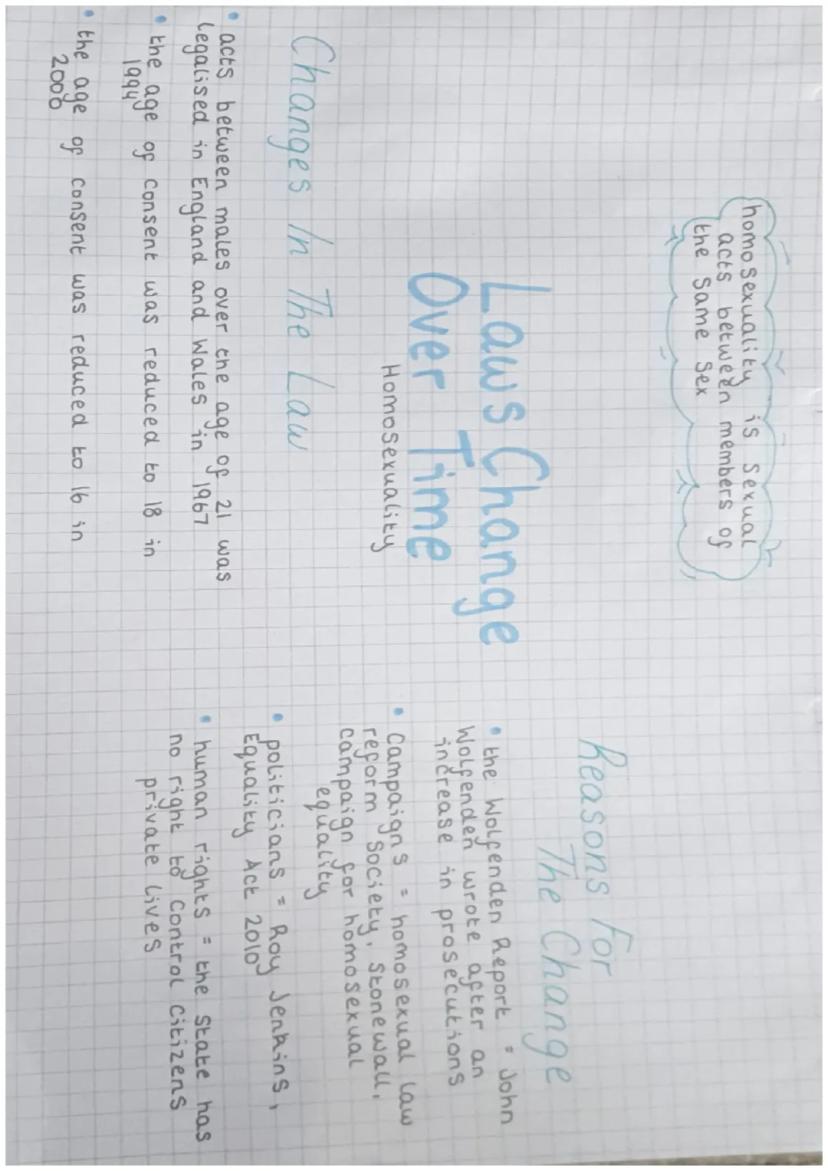 homosexuality is sexual
acts between members of
the same sex
Laws Change
Over Time
Homosexuality
Changes In The Law
• acts between males over the age of 21 was
legalised in England and Wales in 1967
• the age of consent was reduced to 18 in
1994
• the age of consent was reduced to 16 in
2000
Reasons For
The Change
• the Wolfenden Report = John
Wolfenden wrote after an
increase in prosecutions
• Campaigns = homosexual law
reform society, stonewall,
campaign for homosexual
equality
• politicians = Roy Jenkins,
Equality Act 2010
• human rights = the state has
no right to control citizens
private lives